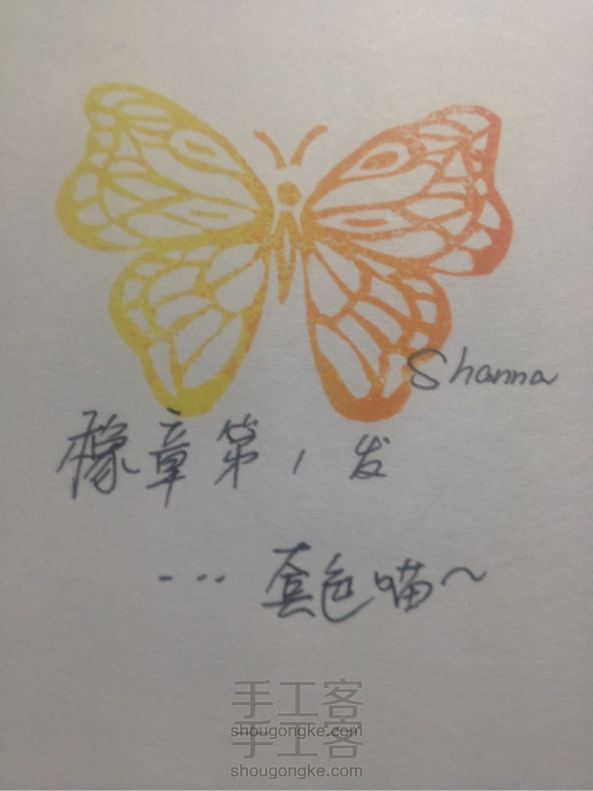 Shanna
橡章第1发
... 套色喵~
手工客
shougongke.com
手工客
shougongke.com